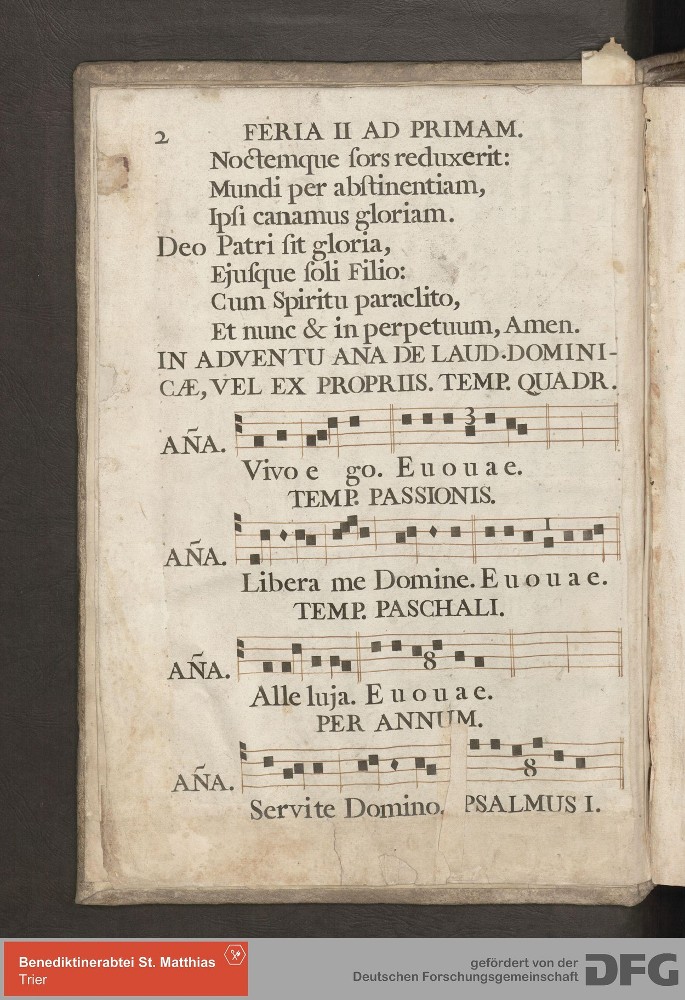 2 FERIA II AD PRIMAM.
Noctemque ſors reduxerit:
Mundi per abſtinentiam,
Ipſi canamus gloriam.
Deo Patri ſit gloria,
Ejuſque ſoli Filio:
Cum Spiritu paraclito,
Et nunc & in perpetuum, Amen.
IN ADVENTU ANA DE LAUD. DOMINI-
CÆ, VEL EX PROPRIIS. TEMP. QUADR.
3
AÑA.
Vivo e go. E u o u a e.
TEMP. PASSIONIS.
1
AÑA.
Libera me Domine. E u o u a e.
TEMP. PASCHALI.
8
AÑA.
Alle luja. E u o u a e.
PER ANNUM.
8
AÑA.
Servite Domino. PSALMUS I.
Benediktinerabtei St. Matthias
Trier
gefördert von der
Deutschen Forschungsgemeinschaft
DFG